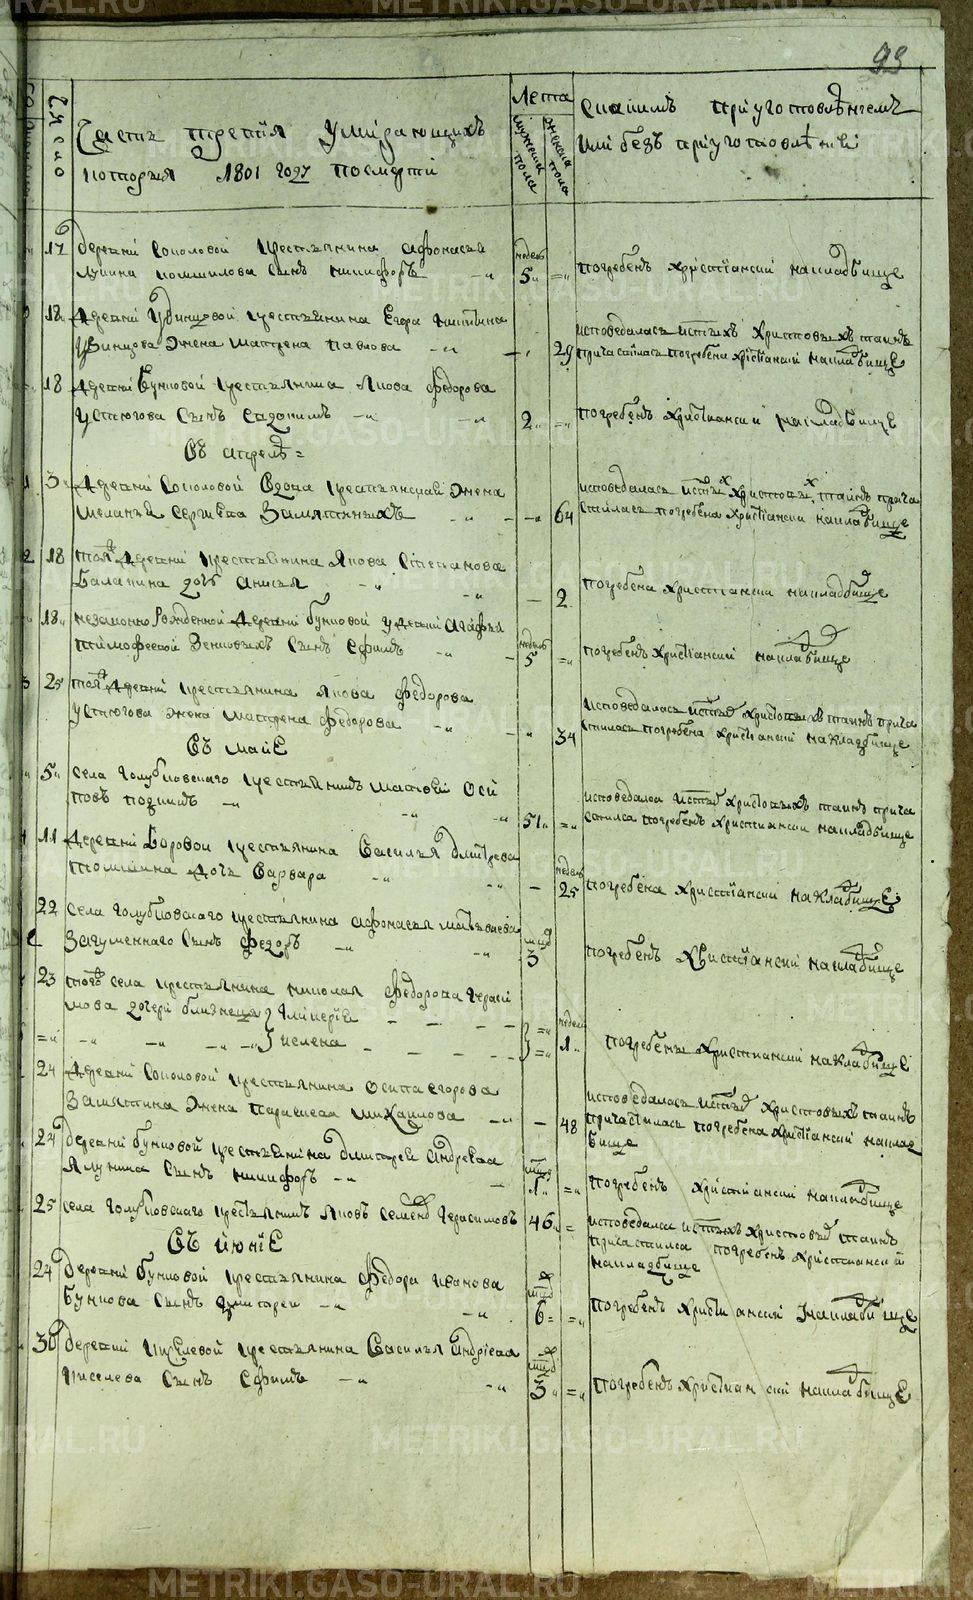 93
Число
Часть третїя умирающихъ
которыя 1801 году померли
Лета
мужеска пола
женска пола
скакимъ прїуготовленїемъ
или безъ прїуготовленїя
17 деревни Соколовой крестьянина Афонасья
сынъ никифоръ недель 5 погребенъ христїански накладбище
18 деревни крестьянина Егора никитина
жена матрена павлова 29 исповедалась истыхъ христовыхъ таинъ
причастилась погребена христїански накладбище
18 деревни бунковой крестьянина якова федорова
устюгова сынъ 2 погребенъ христїански накладбище
Въ апреле
3 деревни Соколовой вдова крестьянская жена
меланья сергиева замятиныхъ 64 исповедалась истыхъ христовыхъ таинъ прича
стилась погребена христїански накладбище
18 тояжъ деревни крестьянина якова степанова
балакина дочь анисья 2 погребена христїански накладбище
18 незаконно рожденной деревни бунковой у девки агафьи
тимофеевой сынъ ефимъ недель 5 погребенъ христїански накладбище
25 тояжъ деревни крестьянина якова федорова
устюгова жена матрена федорова 34 исповедалась истыхъ христовыхъ таинъ прича
стилась погребена христїански накладбище
Въ маїе
5 села голубковскаго крестьянинъ матвей оси
повъ 51 исповедался истыхъ христовыхъ таинъ прича
стился погребенъ христїански накладбище
11 деревни боровой крестьянина василья дмитрева
томшина дочь варвара недель 25 погребена христїански накладбище
22 села голубковскаго крестьянина афонасья матвиева
загуменнаго сынъ федоръ 3 погребенъ христїански накладбище
23 тогожъ села крестьянина николая федорова гераси
мова дочери близнецы гликерїя
елена недели 1 погребены христїански накладбище
24 деревни Соколовой крестьянина осипа егорова
замятина жена параскева михаилова 48 исповедалась истыхъ христовыхъ таинъ
причастилась погребена христїански наклад
бище
24 деревни бунковой крестьянина дмитрея андреева
якунина сынъ никифоръ 1 погребенъ христїански накладбище
25 села голубковскаго крестьянинъ яковъ семеновъ герасимовъ 46 исповедался истыхъ христовыхъ таинъ
причастился погребенъ христїански
накладбище
Въ июнїе
24 деревни бунковой крестьянина федора иванова
бункова сынъ дмитрей 6 погребенъ христїански накладбище
30 деревни киселевой крестьянина василья андрїева
киселева сынъ ефимъ 3 погребенъ христїански накладбище
METRIKI.GASO-URAL.RU